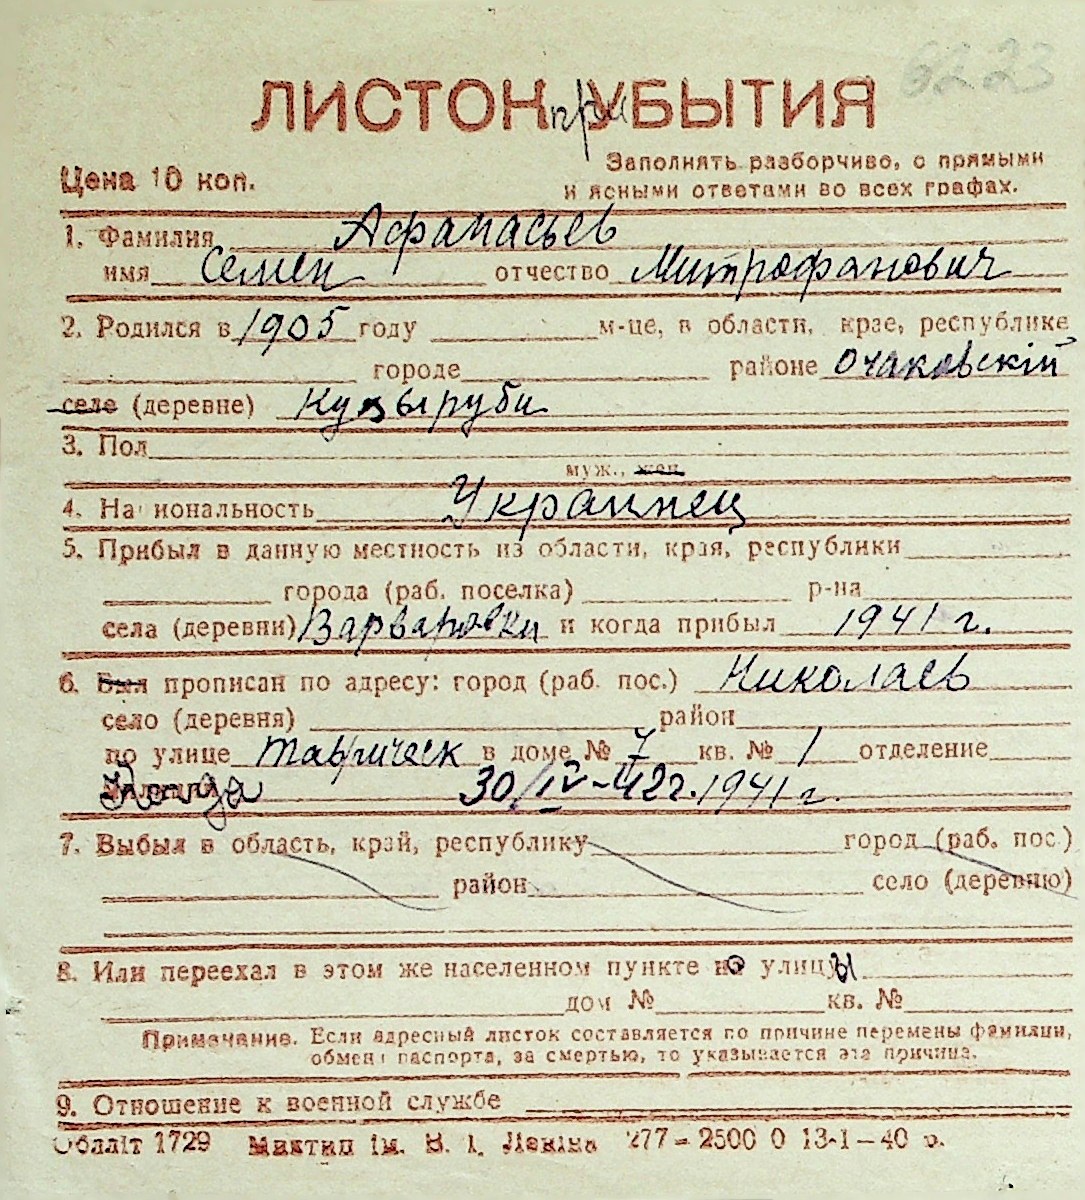 6223
ЛИСТОК при УБЫТИЯ
Цена 10 коп.
Заполнять разборчиво, с прямыми
и ясными ответами во всех графах.
1. Фамилия Афанасьев
имя Семен отчество Митрофанович
2. Родился в 1905 году м-це, в области, крае, республике
городе районе Очаковскій
селе (деревне) Куцыруби
3. Пол
муж., жен.
4. Национальность Украинец
5. Прибыл в данную местность из области, края, республики
города (раб. поселка) р-на
села (деревни) Варваровки и когда прибыл 1941 г.
6. Был прописан по адресу: город (раб. пос.) Николаев
село (деревня) район
по улице Таврическ в доме № 7 кв. № 1 отделение
Когда 30/IV-42г. 1941 г.
7. Выбыл в область, край, республику город (раб. пос.)
район село (деревню)
8. Или переехал в этом же населенном пункте но улицы
дом № кв. №
Примечание. Если адресный листок составляется по причине перемены фамилии,
обмена паспорта, за смертью, то указывается эта причина.
9. Отношение к военной службе
Облліт 1729 Миктип ім. В. І. Леніна 277-2500 0 13-1-40 р.